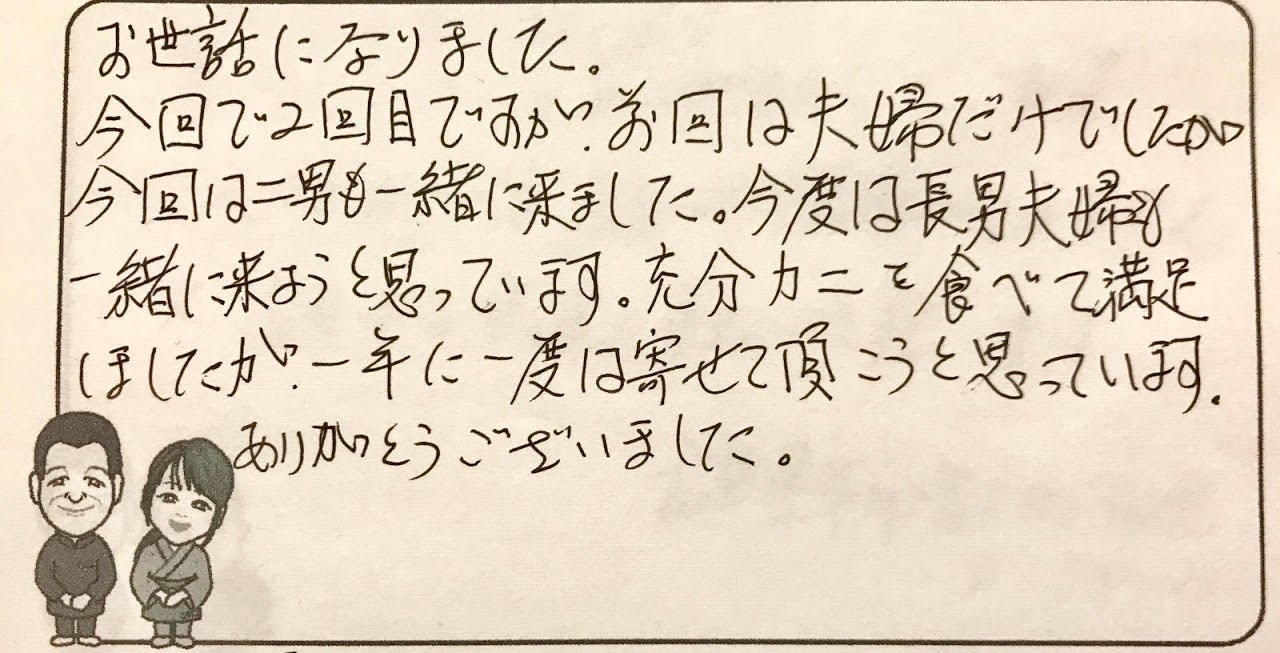 お世話になりました。
今回で2回目ですが、前回は夫婦だけでしたが
今回は二男も一緒に来ました。今度は長男夫婦も
一緒に来ようと思っています。充分カニを食べて満足
しましたが、一年に一度は寄せて頂こうと思っています。
ありがとうございました。